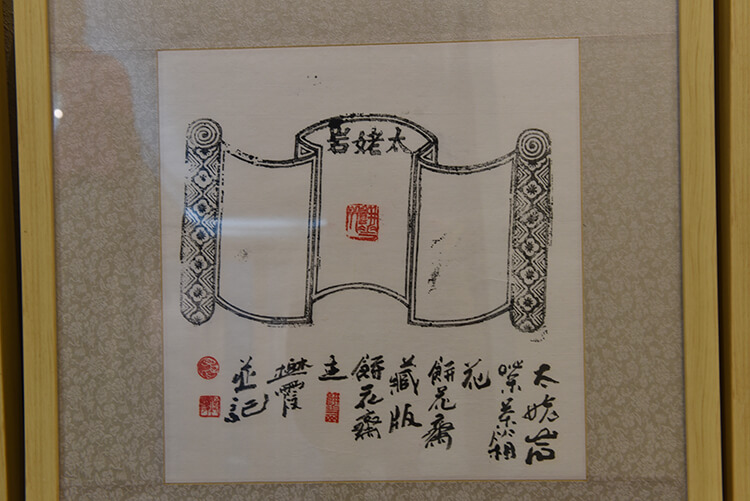 太姥岩
太姥岩
茶箱
花
餅花齋
藏版
餅花齋
主
霞
並記